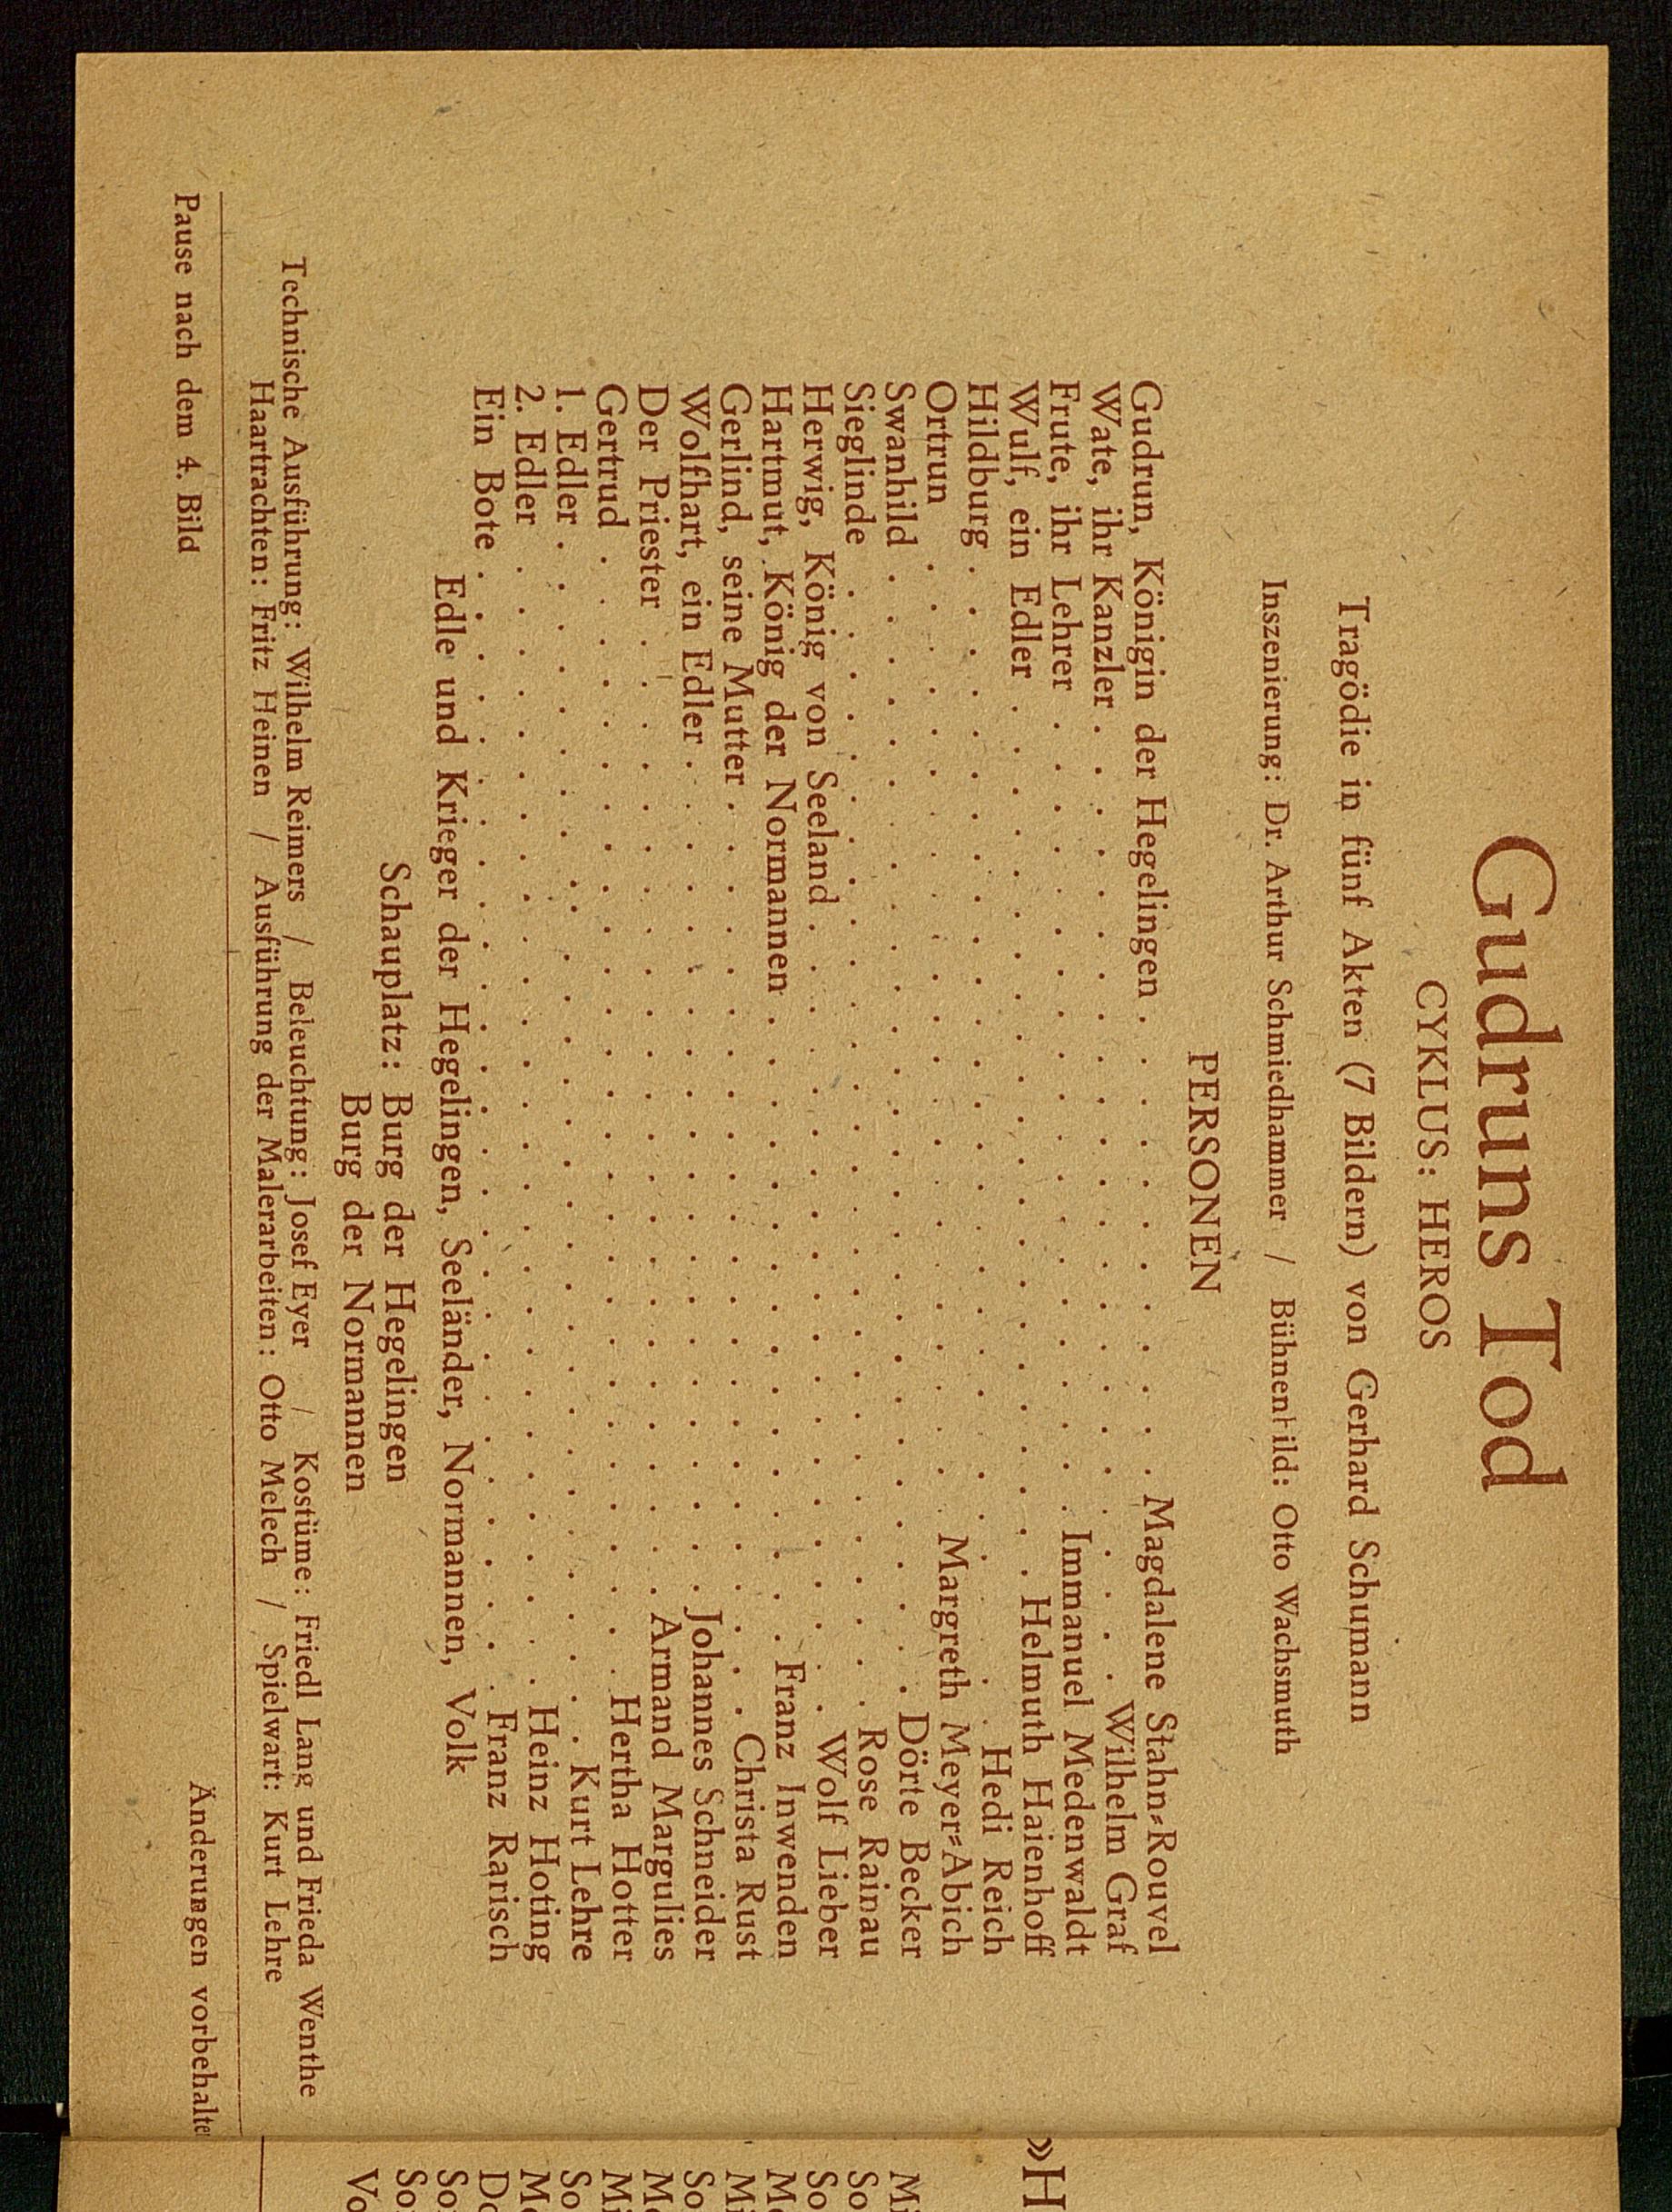 Gudruns Tod
CYKLUS: HEROS
Tragödie in fünf Akten (7 Bildern) von Gerhard Schumann
Inszenierung: Dr. Arthur Schmiedhammer / Bühnenbild: Otto Wachsmuth
PERSONEN
Gudrun, Königin der Hegelingen . . . . . . . . . . . . Magdalene Stahn=Rouvel
Wate, ihr Kanzler . . . . . . . . . . . . . . . . . . . . Wilhelm Graf
Frute, ihr Lehrer . . . . . . . . . . . . . . . . Immanuel Medenwaldt
Wulf, ein Edler . . . . . . . . . . . . . . . . . . Helmuth Haienhoff
Hildburg . . . . . . . . . . . . . . . . . . . . . . . Hedi Reich
Ortrun . . . . . . . . . . . . . . . . . . . Margreth Meyer=Abich
Swanhild . . . . . . . . . . . . . . . . . . . . . . Dörte Becker
Sieglinde . . . . . . . . . . . . . . . . . . . . . . Rose Rainau
Herwig, König von Seeland . . . . . . . . . . . . . . . Wolf Lieber
Hartmut, König der Normannen . . . . . . . . . . . . Franz Inwenden
Gerlind, seine Mutter . . . . . . . . . . . . . . . . . Christa Rust
Wolfhart, ein Edler . . . . . . . . . . . . . . . Johannes Schneider
Der Priester . . . . . . . . . . . . . . . . . . Armand Margulies
Gertrud . . . . . . . . . . . . . . . . . . . . . Hertha Hotter
1. Edler . . . . . . . . . . . . . . . . . . . . . . Kurt Lehre
2. Edler . . . . . . . . . . . . . . . . . . . . . Heinz Hoting
Ein Bote . . . . . . . . . . . . . . . . . . . . . Franz Rarisch
Edle und Krieger der Hegelingen, Seeländer, Normannen, Volk
Schauplatz: Burg der Hegelingen
Burg der Normannen
Technische Ausführung: Wilhelm Reimers / Beleuchtung: Josef Eyer / Kostüme: Friedl Lang und Frieda Wenthe
Haartrachten: Fritz Heinen / Ausführung der Malerarbeiten: Otto Melech / Spielwart: Kurt Lehre
Pause nach dem 4. Bild Änderungen vorbehalte
»H
Mi
So
So
Mo
Mi
So
Mo
Mi
So
Mo
Do
So
So
Vo